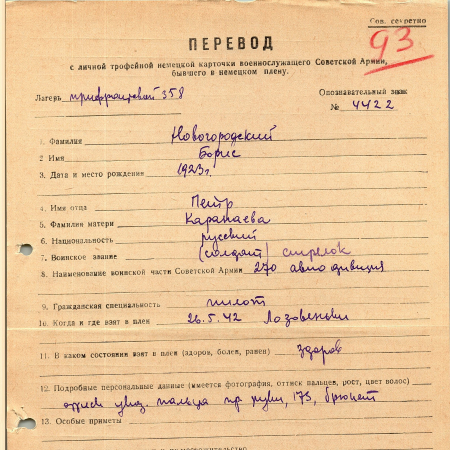 Сов. секретно
93.
ПЕРЕВОД
с личной трофейной немецкой карточки военнослужащего Советской Армии,
бывшего в немецком плену.
Лагерь прифронтовой 358 Опознавательный знак
№ 4422
1. Фамилия Новогородский
2 Имя Борис
3. Дата и место рождения 1923г.
4. Имя отца Петр
5. Фамилия матери Карапаева
6. Национальность русский
7. Воинское звание (солдат) стрелок
8. Наименование воинской части Советской Армии 270 авиодивизия
9. Гражданская специальность пилот
10. Когда и где взят в плен 26.5.42 Лозовеньки
11. В каком состоянии взят в плен (здоров, болен, ранен) здоров
12. Подробные персональные данные (имеется фотография, оттиск пальцев, рост, цвет волос)
оттиск указ. пальца пр руки, 173, брюнет
13. Особые приметы